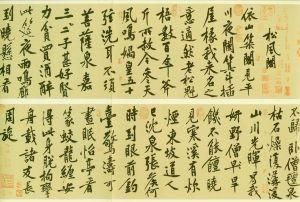 松風閣
依山築閣見平
川夜闌箕斗插
屋椽我來名之
意適然老松魁
梧數百年斧
斤所赦今參天
風鳴媧皇五十
弦洗耳不須
菩薩泉嘉
二三子甚好賢
力貧買酒醉
此筵夜雨鳴廊
到曉懸相看
不歸臥僧氈泉
枯石燥復潺湲
山川光輝為我
妍野僧旱
飢不能饘曉
見寒溪有炊
煙東坡道人
已沈泉張侯何
時到眼前釣
臺驚濤可
晝眠怡亭看
篆蛟龍纏安
得此身脫拘攣
舟載諸友長
周旋